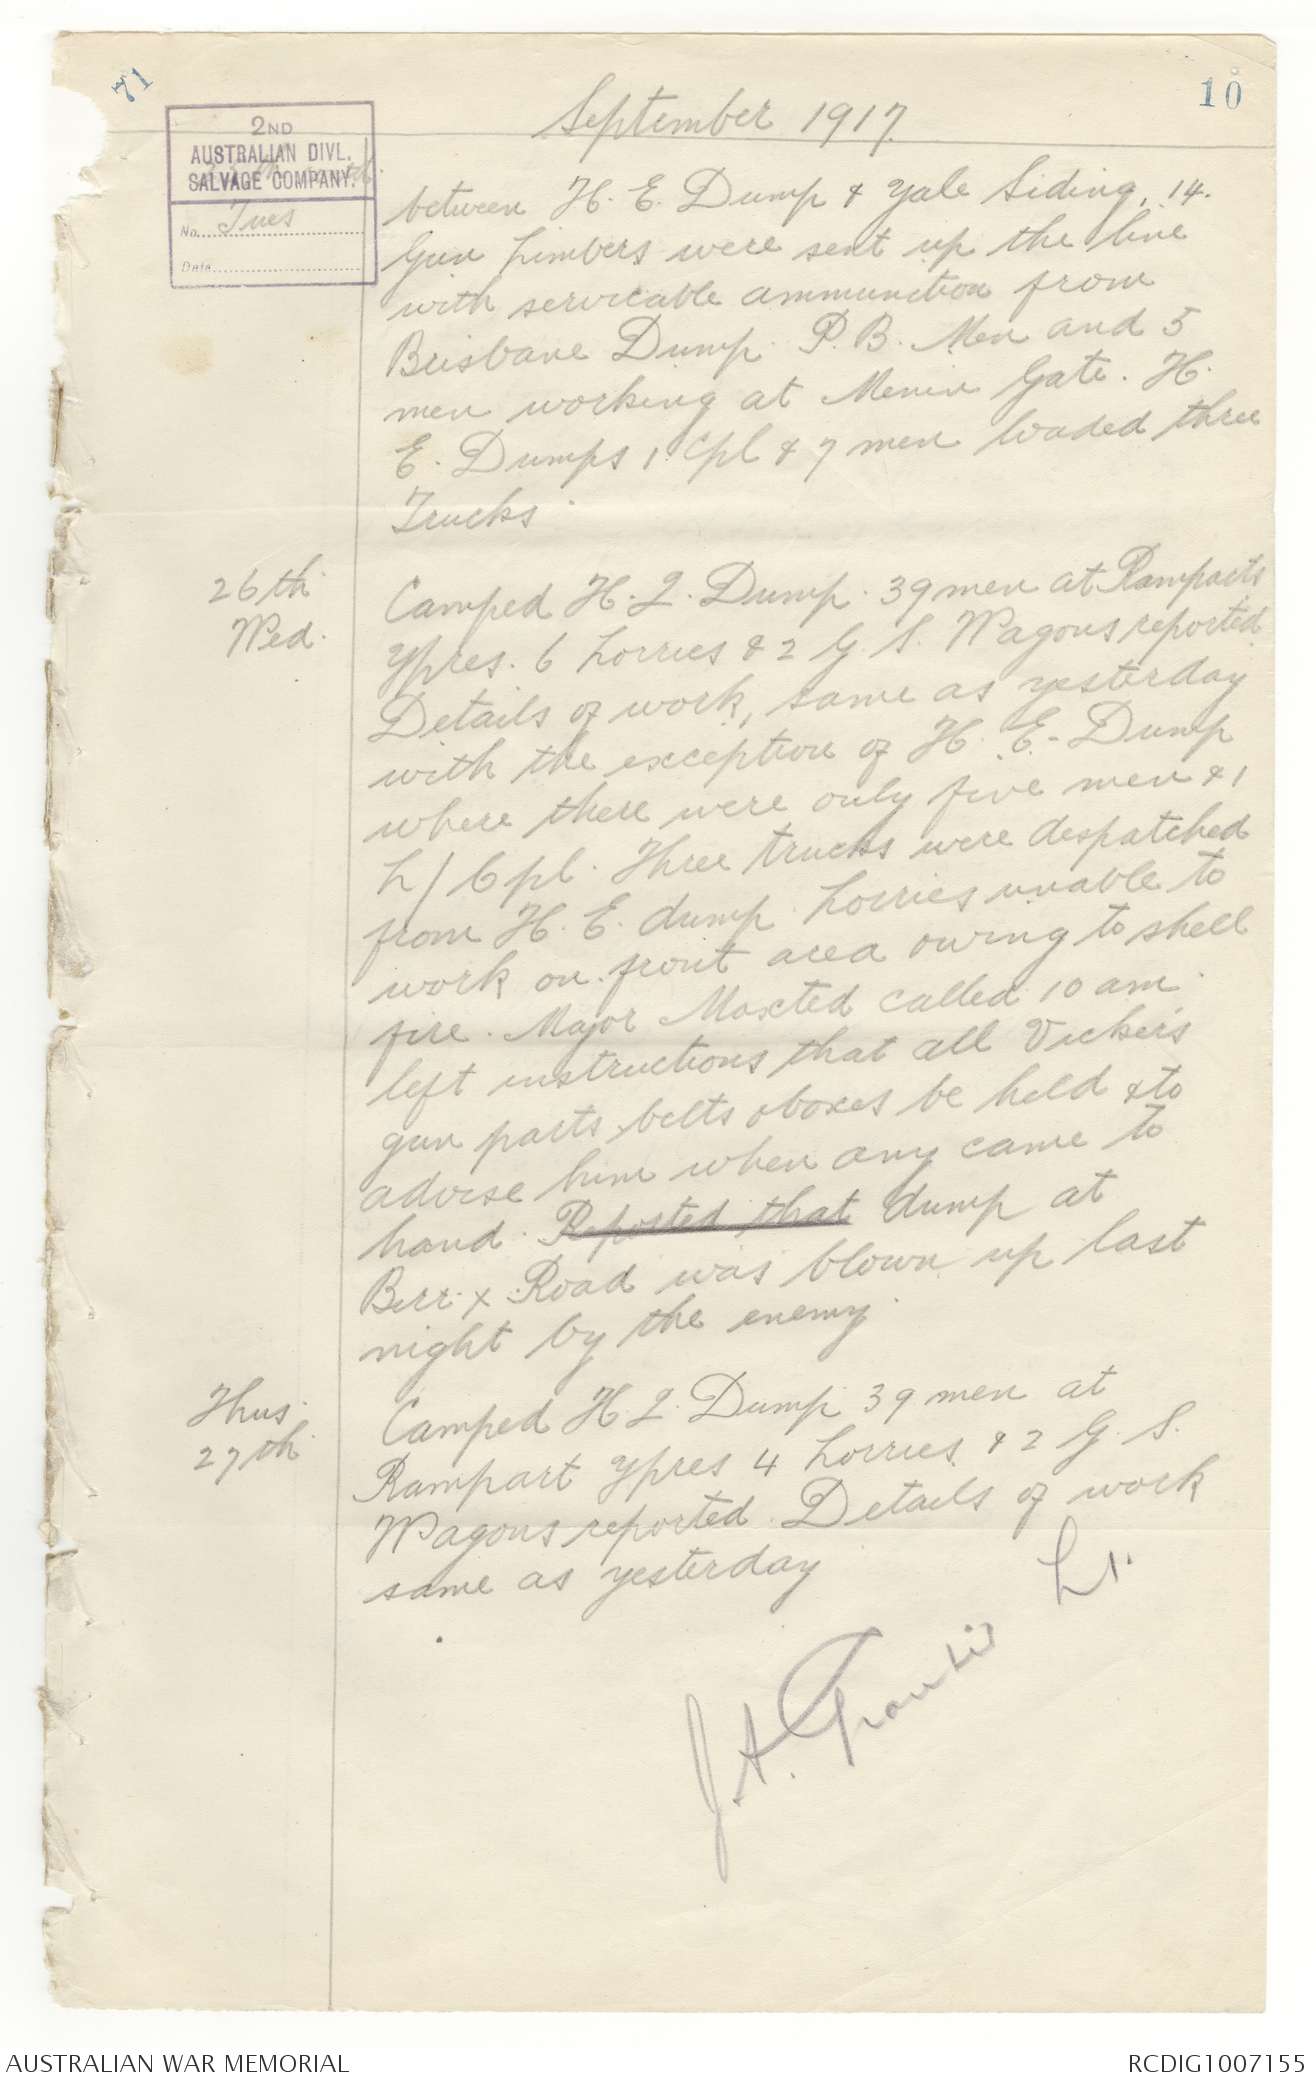 71
10
September 1917.
2ND
AUSTRALIAN DIVL.
SALVAGE COMPANY.
No. Tues
Date
between H. E. Dump & Yale Siding, 14.
Gun Limbers were sent up the line
with servicable ammunition from
Brisbane Dump. P. B. Men and 5
men working at Menin Gate. H.
E. Dumps 1 Cpl & 7 men loaded three
Trucks.
26th
Wed.
Camped H. Q. Dump. 39 men at Ramparts
Ypres. 6 Lorries & 2 G. S. Wagons reported
Details of work, same as yesterday
with the exception of H. E. Dump
where there were only five men & 1
L/Cpl. Three trucks were despatched
from H. E. dump. Lorries unable to
work on front area owing to shell
fire. Major Maxted called 10 am.
left instructions that all Vickers
gun parts, belts & boxes be held & to
advise him when any came to
hand. Reported that dump at
Birr x Road was blown up last
night by the enemy.
Thus.
27th
Camped H. Q. Dump. 39 men at
Rampart Ypres 4 Lorries & 2 G. S.
Wagons reported. Details of work
same as yesterday
Lt.
J. A.
AUSTRALIAN WAR MEMORIAL
RCDIG1007155